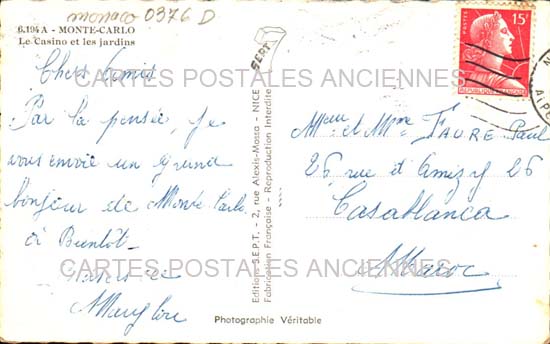 monaco 0376 D
6.194 A - MONTE-CARLO
Le Casino et les jardins
SEPT
POSTES
15F
REPUBLIQUE FRANÇAISE
CARTES POSTALES ANCIENNES
Chers Amis
Par la pensée, je
vous envoie un Grand
bonjour de Monte Carlo
à Bientôt
Editions S.E.P.T. - 2, rue Alexis-Mossa - NICE
Fabrication Française - Reproduction Interdite
Mme FAURE Paul
26 rue 26
Casablanca
Maroc
CARTES POSTALES ANCIENNES
Photographie Véritable